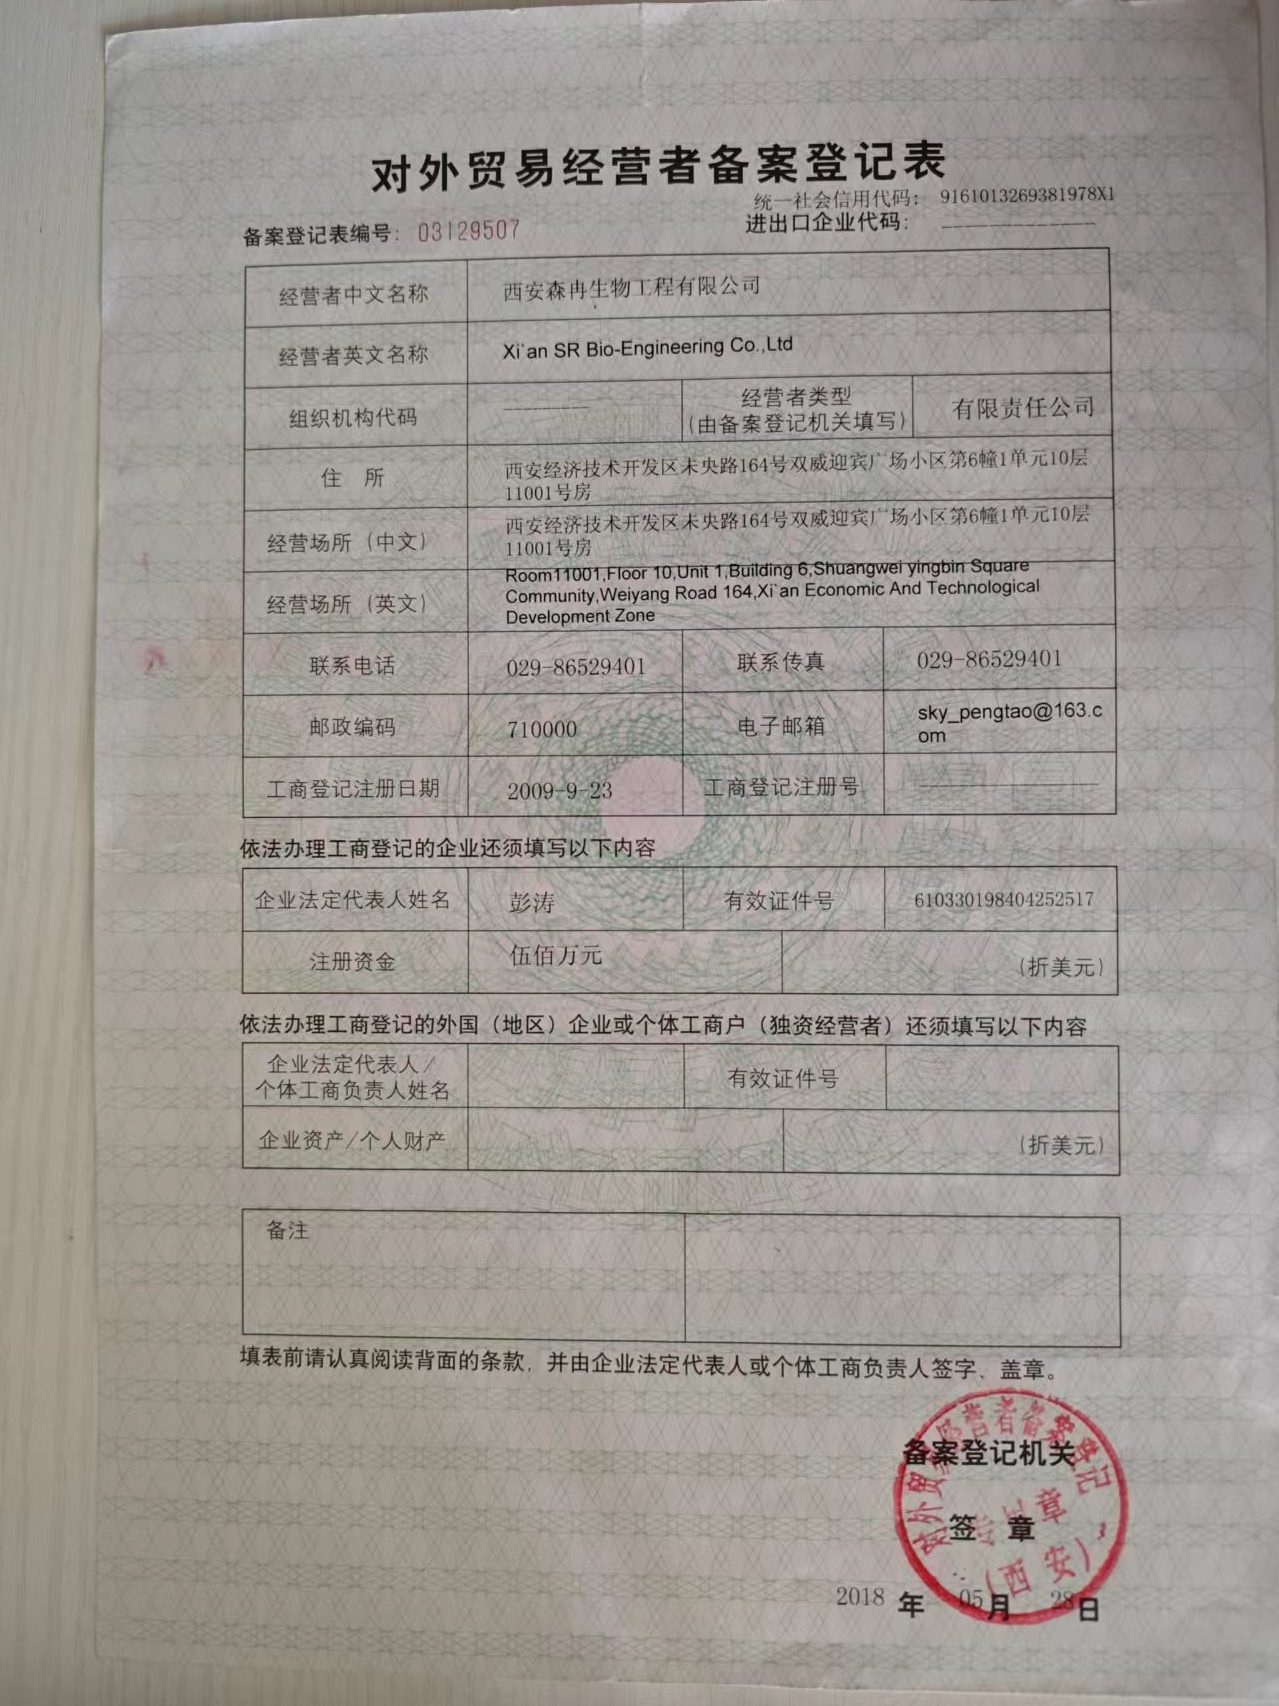 对外贸易经营者备案登记表
统一社会信用代码： 9161013269381978X1
备案登记表编号： 03129507
进出口企业代码：
经营者中文名称 西安森冉生物工程有限公司
经营者英文名称 Xi`an SR Bio-Engineering Co.,Ltd
组织机构代码 经营者类型 有限责任公司
(由备案登记机关填写)
住 所 西安经济技术开发区未央路164号双威迎宾广场小区第6幢1单元10层
11001号房
经营场所（中文） 西安经济技术开发区未央路164号双威迎宾广场小区第6幢1单元10层
11001号房
经营场所（英文） Room11001,Floor 10,Unit 1,Building 6,Shuangwei yingbin Square
Community,Weiyang Road 164,Xi`an Economic And Technological
Development Zone
联系电话 029-86529401 联系传真 029-86529401
邮政编码 710000 电子邮箱 sky_pengtao@163.c
om
工商登记注册日期 2009-9-23 工商登记注册号
依法办理工商登记的企业还须填写以下内容
企业法定代表人姓名 彭涛 有效证件号 610330198404252517
注册资金 伍佰万元 (折美元)
依法办理工商登记的外国（地区）企业或个体工商户（独资经营者）还须填写以下内容
企业法定代表人/
个体工商负责人姓名 有效证件号
企业资产/个人财产 (折美元)
备注
填表前请认真阅读背面的条款，并由企业法定代表人或个体工商负责人签字、盖章。
对外贸易经营者备案登记
备案登记机关
专用章
签 章
(西安)
2018 年 05 月 28 日